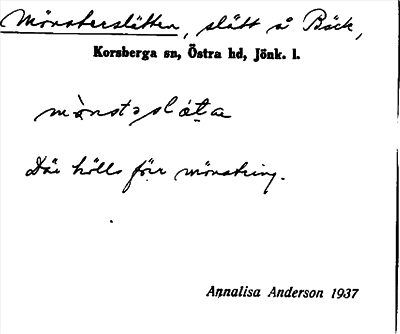 Mönsterslätten, slätt å Bäck,
Korsberga sn, Östra hd, Jönk. l.
mȯnstəslȧtɑ
Där hölls förr mönstring.
Annalisa Anderson 1937